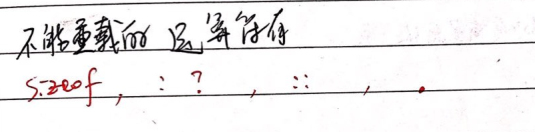 不能重载的 运算符有
sizeof , : ? , :: , .